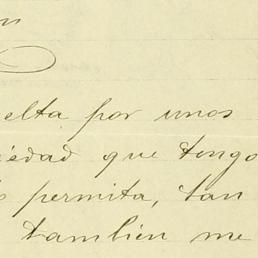 elta por unos
iedad que tengo
permita, tan
tambien me